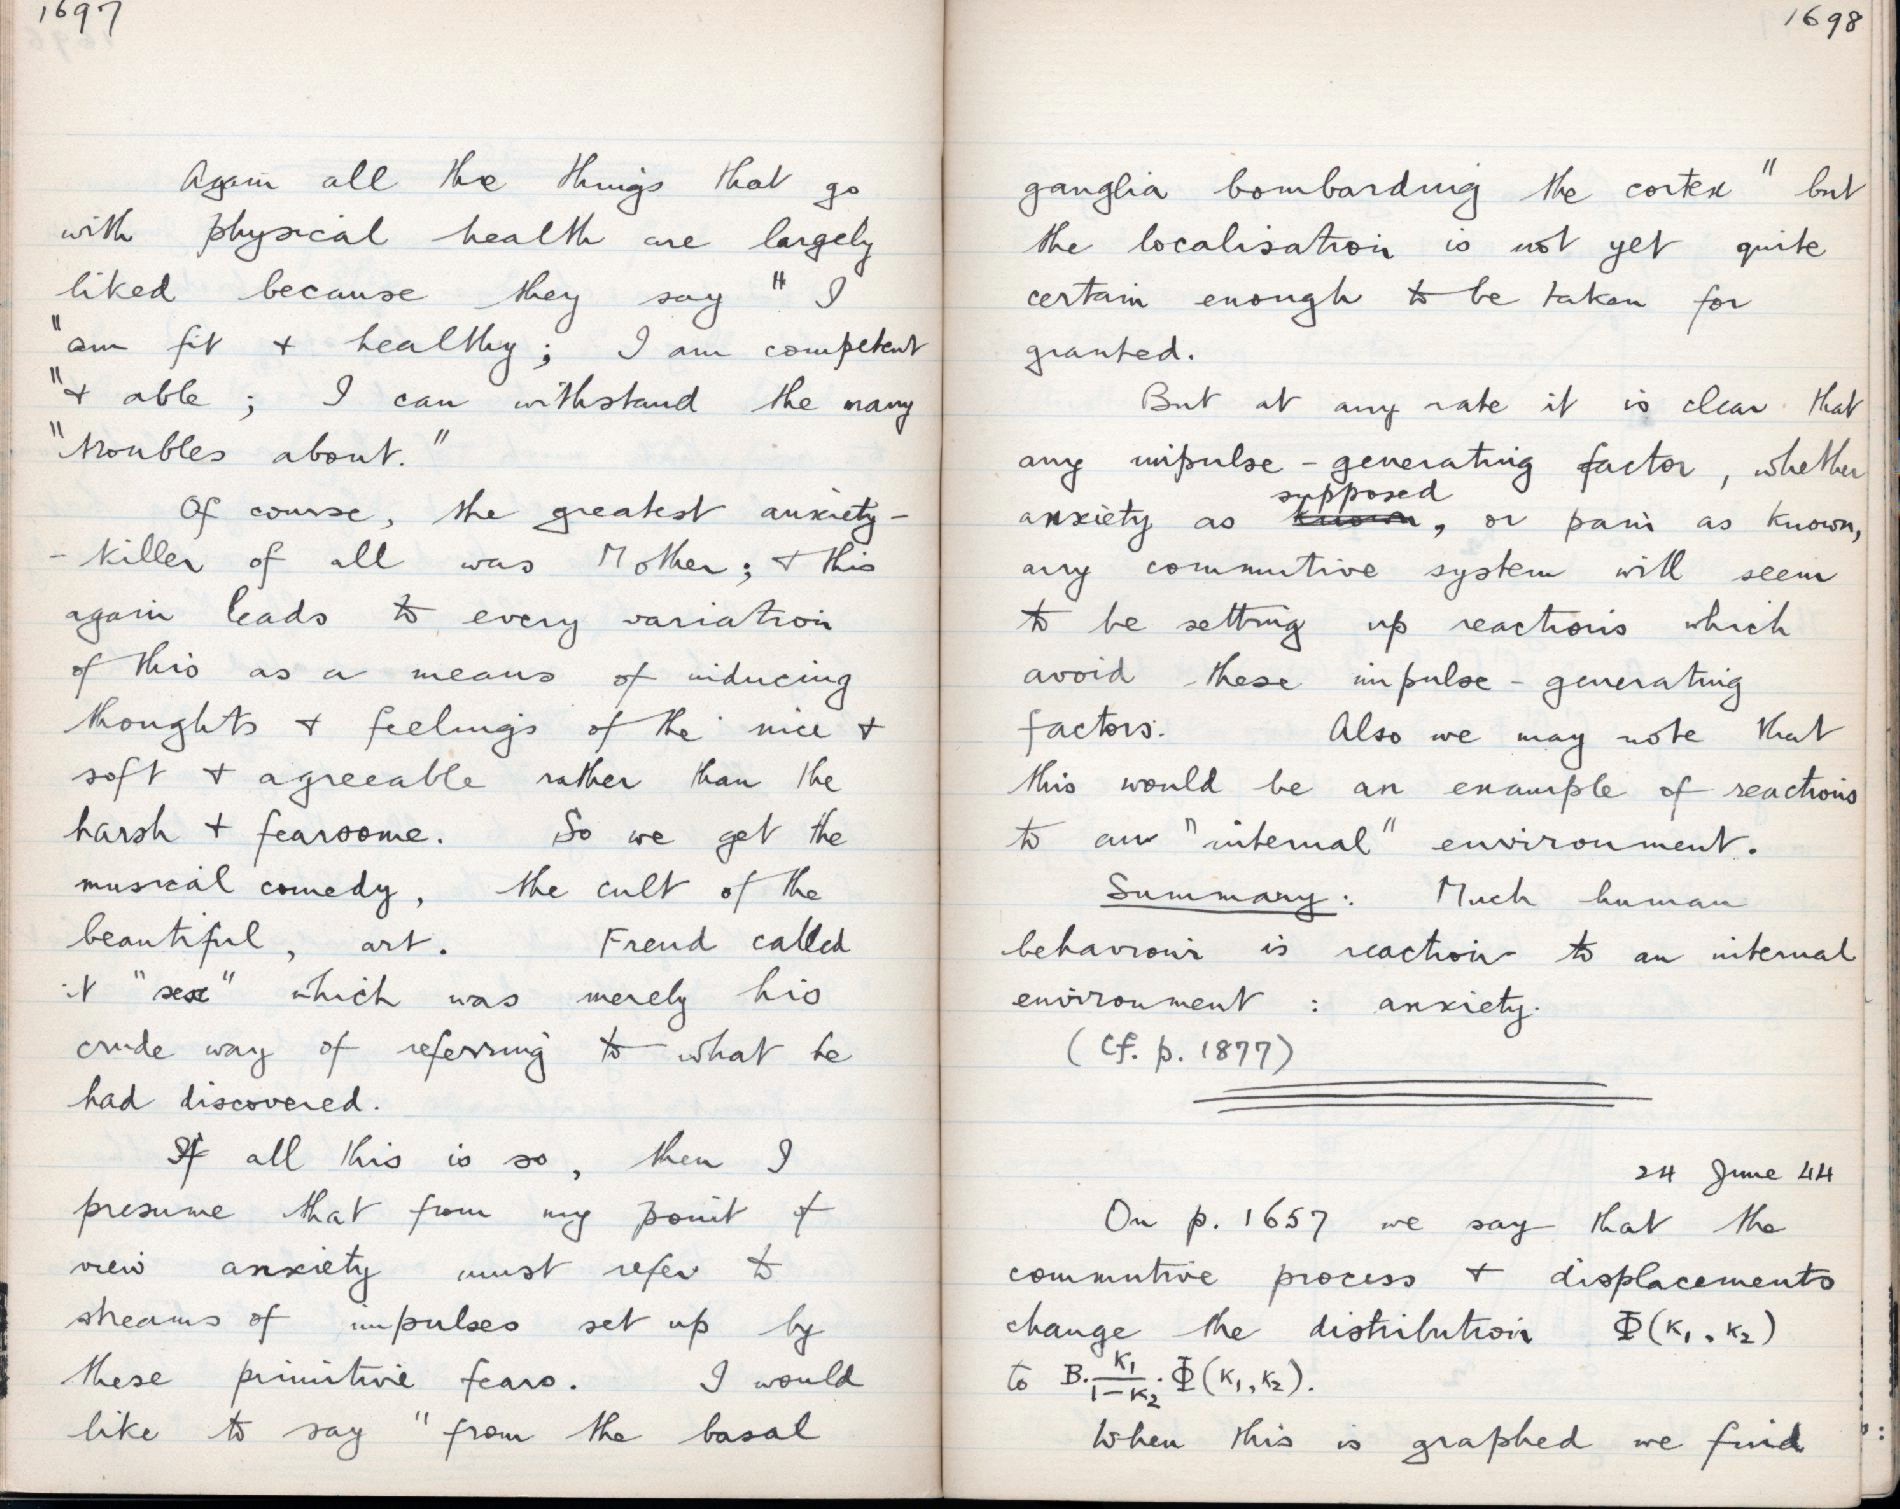 1697
Again all the things that go
with physical health are largely
liked because they say " I
"am fit + healthy ; I am competent
"+ able ; I can withstand the many
"troubles about."
Of course, the greatest anxiety-
-killer of all was Mother; + this
again leads to every variation
of this as a means of inducing
thoughts + feelings of the nice +
soft + agreeable rather than the
harsh + fearsome. So we get the
musical comedy, the cult of the
beautiful, art. Freud called
it "sex" which was merely his
crude way of referring to what he
had discovered.
If all this is so, then I
presume that from my point of
view anxiety must refer to
streams of impulses set up by
these primitive fears. I would
like to say "from the basal
1698
ganglia bombarding the cortex" but
the localisation is not yet quite
certain enough to be taken for
granted.
But at any rate it is clear that
any impulse-generating factor, whether
supposed
anxiety as known, or pain as known,
any commutive system will seem
to be setting up reactions which
avoid these impulse-generating
factors. Also we may note that
this would be an example of reactions
to an "internal" environment.
Summary: Much human
behaviour is reaction to an internal
environment : anxiety.
(Cf. p. 1877)
24 June 44
On p. 1657 we say that the
commutive process + displacements
change the distribution Φ(κ₁, κ₂)
to B. κ₁/(1-κ₂) . Φ(κ₁, κ₂).
When this is graphed we find